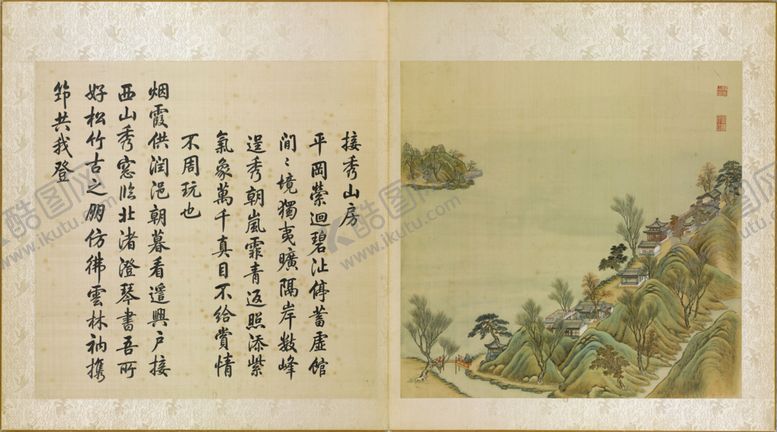 接秀山房
平岡縈迴碧沚停蓄虛館
間〻境獨夷曠隔岸數峰
逞秀朝嵐霏青返照添紫
氣象萬千真目不給賞情
不周玩也
烟霞供潤浥朝暮看遥興戶接
西山秀窓臨北渚澄琴書吾所
好松竹古之朋仿彿雲林衲攜
筇共我登
酷图网
www.ikutu.com